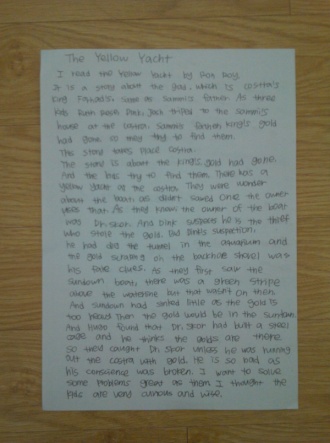 The Yellow Yacht
I read the Yellow Yacht by Ron Roy.
It is a story about the gold, which is Costra's
king same as Sammi's father. As three
kids from Green Park, Jack to the Sammi's
house at the Costra. Sammi's king's gold
had gone so they try to find them.
This story takes place Costra.
The story is about the king's gold had gone.
And the kids try to find them. There was a
yellow yacht at the Costra. They were wonder
about the boat, as didn't sailed once the owner
was that. As they knew the owner of the boat
was Dr. Skor. And Dink suspects he is the thief
who stole the gold. Did Dink's suspection,
he had dig the tunnel in the aquarium and
the gold scratching on the backhoe shovel was
his clues. As they first saw the
sundown boat, there was a green stripe
above the waterline but that wasn't on then.
And sundown had sinked little as the gold is
too heavy. Then the gold would be in the sundown.
And found that Dr. Skor had built a steel
cage and he thinks the golds are there.
So they caught Dr. Skor unless he was
out the Costra with gold. He is so bad as
his conscience was broken. I want to solve
some problems great as them. I thought the
kids are very curious and wise.